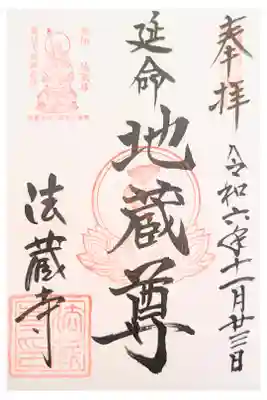 奉拝
令和六年十一月廿三日
延命
地蔵尊
法蔵寺